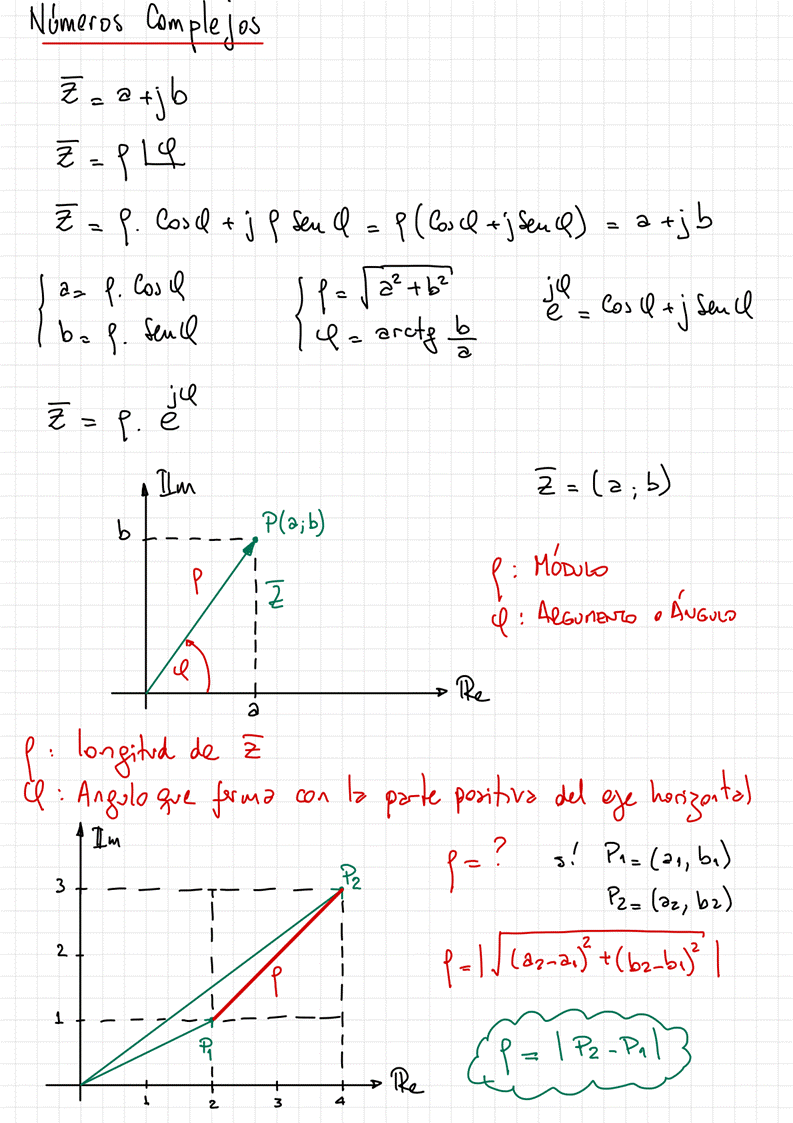 Números Complejos
z̅ = a + jb
z̅ = ρ ∟φ
z̅ = ρ. Cosφ + j ρ Senφ = ρ(Cosφ + j Senφ) = a + jb
{ a = ρ. Cosφ
b = ρ. Senφ
{ ρ = √(a² + b²)
φ = arctg b/a
e^jφ = Cosφ + j Senφ
z̅ = ρ. e^jφ
Im
z̅ = (a ; b)
b
P(a;b)
ρ
z̅
φ
a
Re
ρ : MÓDULO
φ : ARGUMENTO o ÁNGULO
ρ : longitud de z̅
φ : Angulo que forma con la parte positiva del eje horizontal
Im
3
2
1
P₂
ρ
P₁
1 2 3 4
Re
ρ = ? si P₁ = (a₁, b₁)
P₂ = (a₂, b₂)
ρ = |√((a₂-a₁)² + (b₂-b₁)²)|
ρ = | P₂ - P₁ |